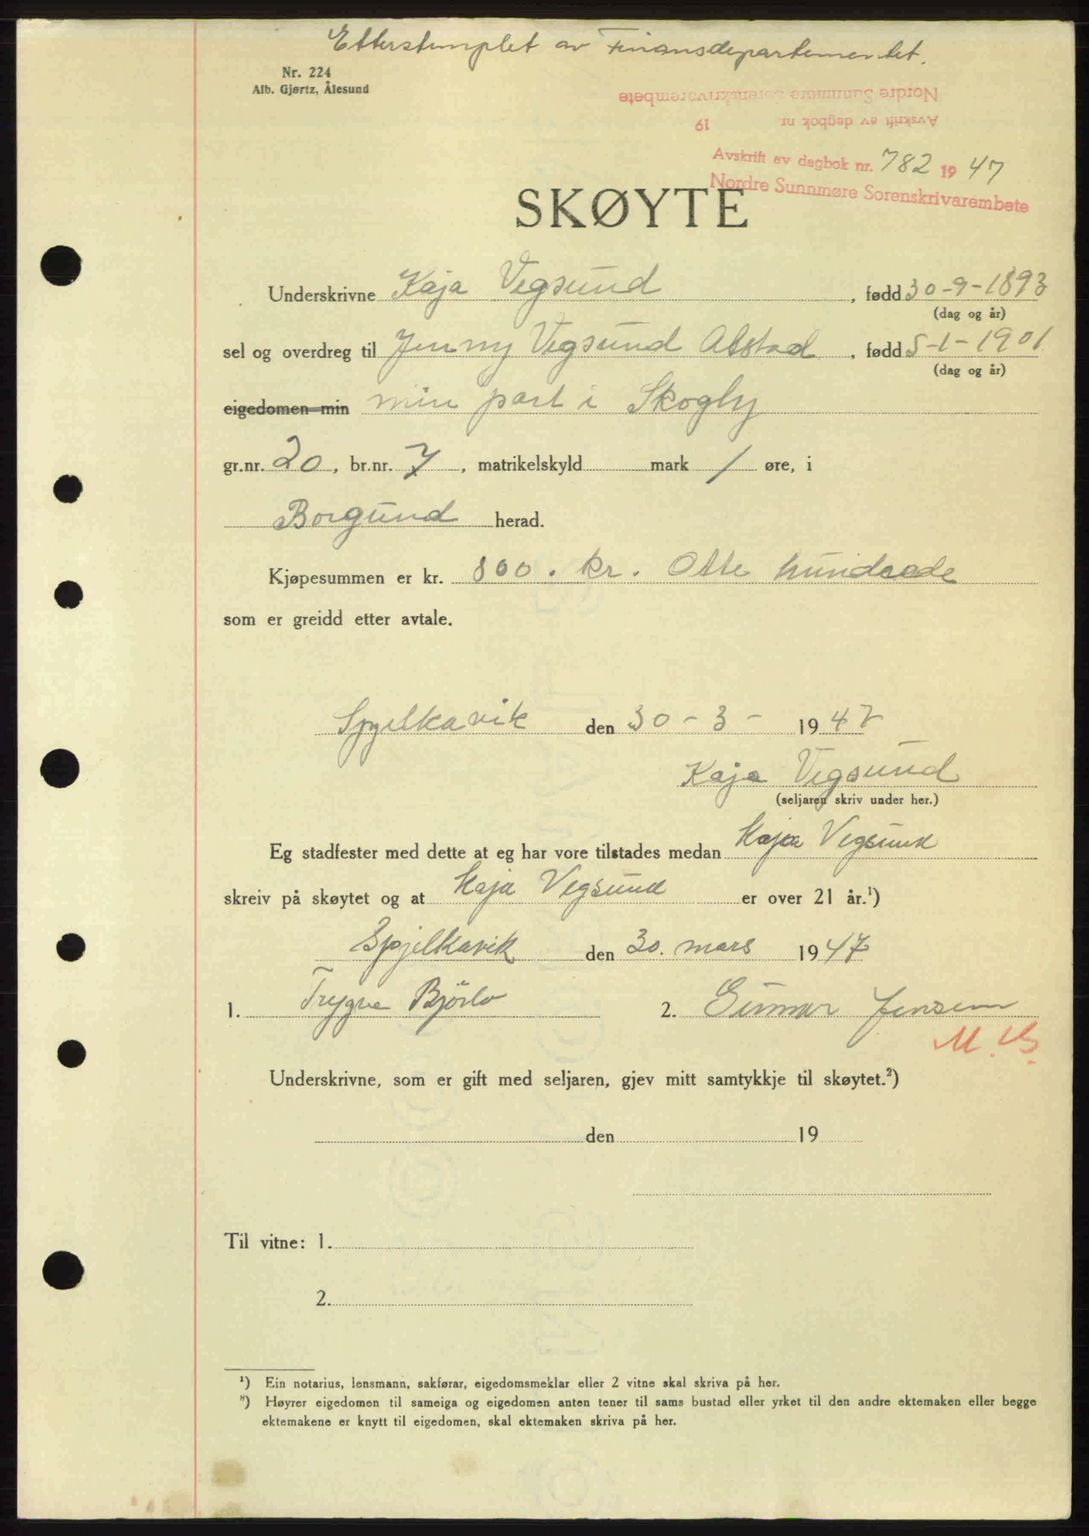 Etterstemplet av Finansdepartementet.
Nr. 224
Alb. Gjørtz, Ålesund
Nordre Sunnmøre Sorenskrivarembete
Avskrift av dagbok nr 19
Avskrift av dagbok nr. 782 1947
Nordre Sunnmøre Sorenskrivarembete
SKØYTE
Underskrivne Kaja Vegsund, fødd 30-9-1893
(dag og år)
sel og overdreg til Jenny Vegsund Abstad, fødd 5-1-1901
(dag og år)
eigedomen min min part i Skogly
gr.nr. 20, br.nr. 7, matrikelskyld mark / øre, i
Borgund herad.
Kjøpesummen er kr. 800. kr. Otte hundrede
som er greidd etter avtale.
Spjelkavik den 30-3- 1947
Kaja Vegsund
(seljaren skriv under her.)
Eg stadfester med dette at eg har vore tilstades medan Kaja Vegsund
skreiv på skøytet og at Kaja Vegsund er over 21 år.¹)
Spjelkavik den 30. mars 1947
1. Trygve Bjørlo 2. Gunnar Jensen
M. B.
Underskrivne, som er gift med seljaren, gjev mitt samtykkje til skøytet.²)
den 19
Til vitne: 1.
2.
¹) Ein notarius, lensmann, sakførar, eigedomsmeklar eller 2 vitne skal skriva på her.
²) Høyrer eigedomen til sameiga og eigedomen anten tener til sams bustad eller yrket til den andre ektemaken eller begge
ektemakene er knytt til eigedomen, skal ektemaken skriva på her.